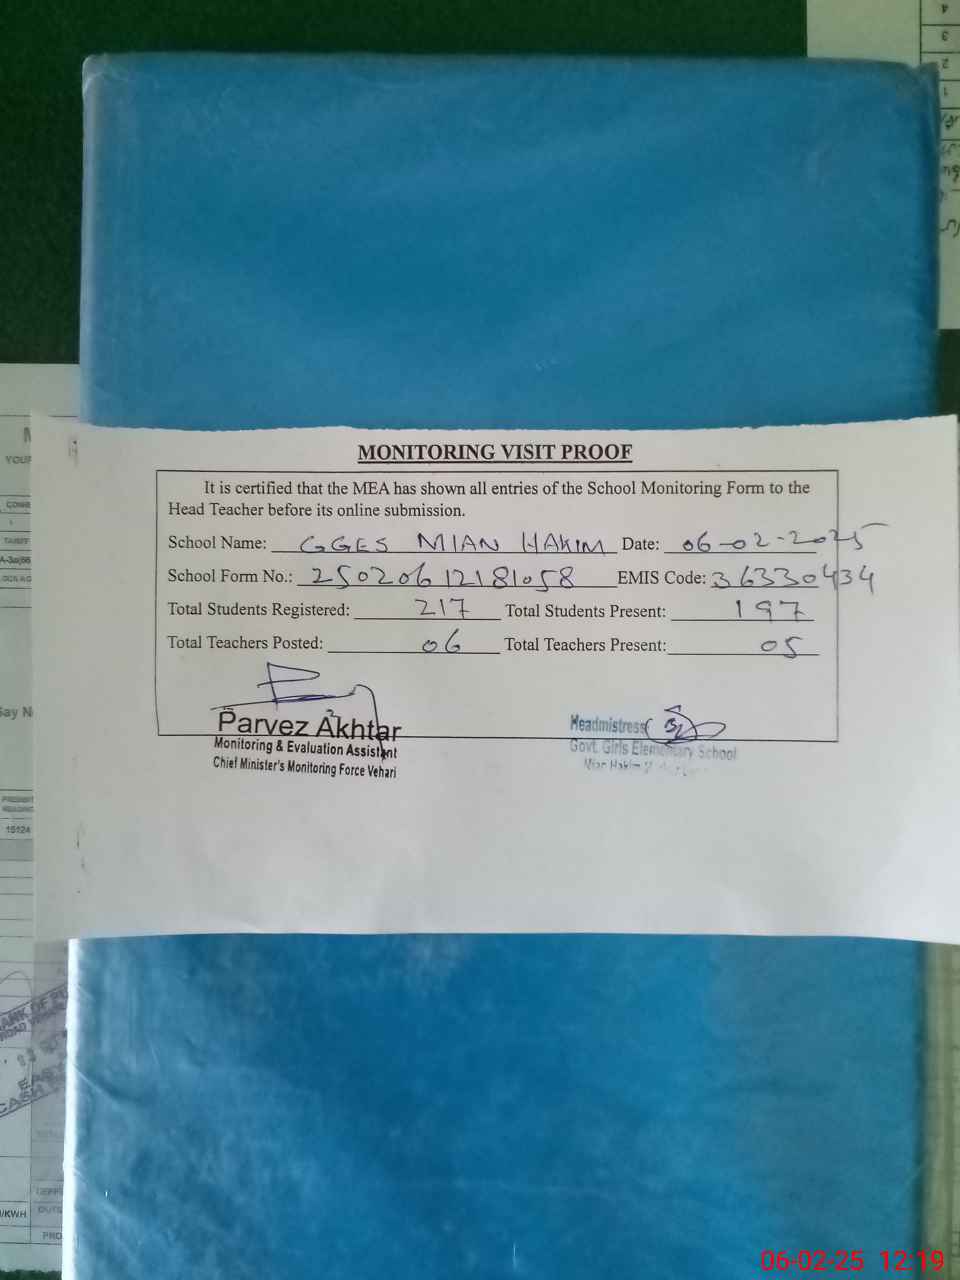 MONITORING VISIT PROOF
It is certified that the MEA has shown all entries of the School Monitoring Form to the
Head Teacher before its online submission.
School Name: GGES MIAN HAKIM Date: 06-02-2025
School Form No.: 25020612181058 EMIS Code: 36330434
Total Students Registered: 217 Total Students Present: 197
Total Teachers Posted: 06 Total Teachers Present: 05
Parvez Akhtar
Monitoring & Evaluation Assistant
Chief Minister's Monitoring Force Vehari
Headmistress
Govt. Girls Elementary School
Mian Hakim
15124
/KWH
06-02-25 12:19